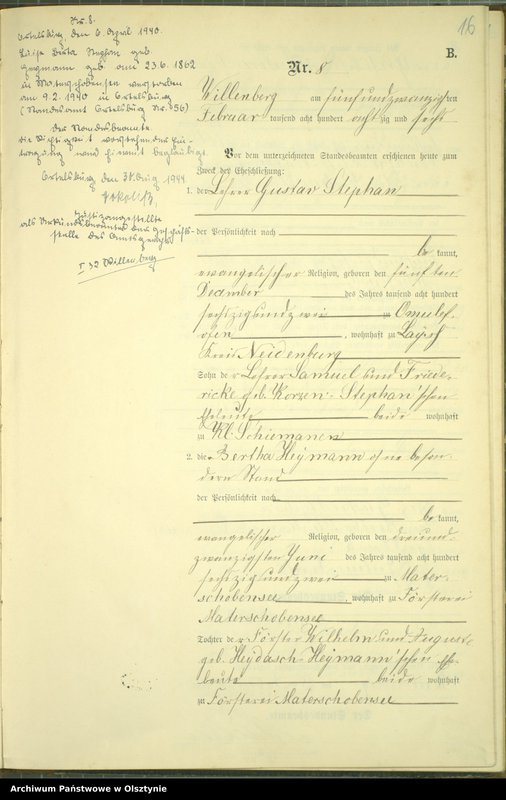 16
B.
Nr. 8.
Ortelsburg den 6. April 1940.
Luise Berta Stephan geb.
Heymann geb. am 23.6.1862
in Materschobensee verstorben
am 9.2.1940 in Ortelsburg
(Standesamt Ortelsburg Nr. 56)
Der Standesbeamte.
die Richtigkeit vorstehender Ein-
tragung wird hiermit beglaubigt.
Ortelsburg, den 31. Aug 1944
Justizangestellte
als Urkundsbeamter der Geschäfts-
stelle des Amtsgerichts
I 32 Willenberg
Nr. 8
Willenberg am fünfundzwanzigsten
Februar tausend acht hundert achtzig und sechs
Vor dem unterzeichneten Standesbeamten erschienen heute zum
Zweck der Eheschließung:
1. der Lehrer Gustav Stephan
der Persönlichkeit nach
bekannt,
evangelischer Religion, geboren den fünften
December des Jahres tausend acht hundert
sechzigundzwei zu Omulef-
ofen, wohnhaft zu
Kreis Neidenburg
Sohn der Lehrer Samuel und Friede-
ricke geb. Korzen-Stephan'schen
Eheleute beide wohnhaft
zu Kl. Schiemanen
2. die Bertha Heymann ohne beson-
dern Stand
der Persönlichkeit nach
bekannt,
evangelischer Religion, geboren den dreiund-
zwanzigsten Juni des Jahres tausend acht hundert
sechzigundzwei zu Mater-
schobensee, wohnhaft zu Försterei
Materschobensee
Tochter der Förster Wilhelm und Auguste
geb. Heydasch-Heymann'schen Ehe-
leute beide wohnhaft
zu Försterei Materschobensee
Archiwum Państwowe w Olsztynie